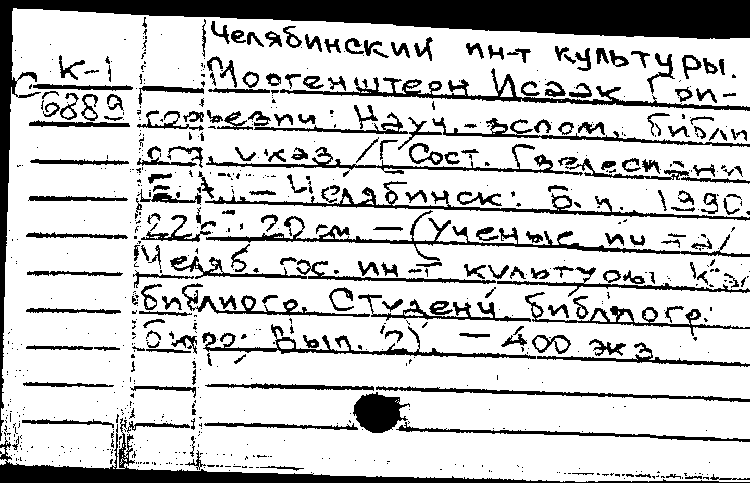 Челябинский ин-т культуры.
К-1
Моргенштерн Исаак Гри-
С
6889
горьевич: Науч.-вспом. библи
огр. указ. / [Сост. Гзелесиани
Е. А.]. - Челябинск: Б. и., 1990.
22 с.; 20 см. - (Ученые ин-та /
Челяб. гос. ин-т культуры. Ка
библиогр. Студенч. библиогр.
бюро; Вып. 2). - 400 экз.